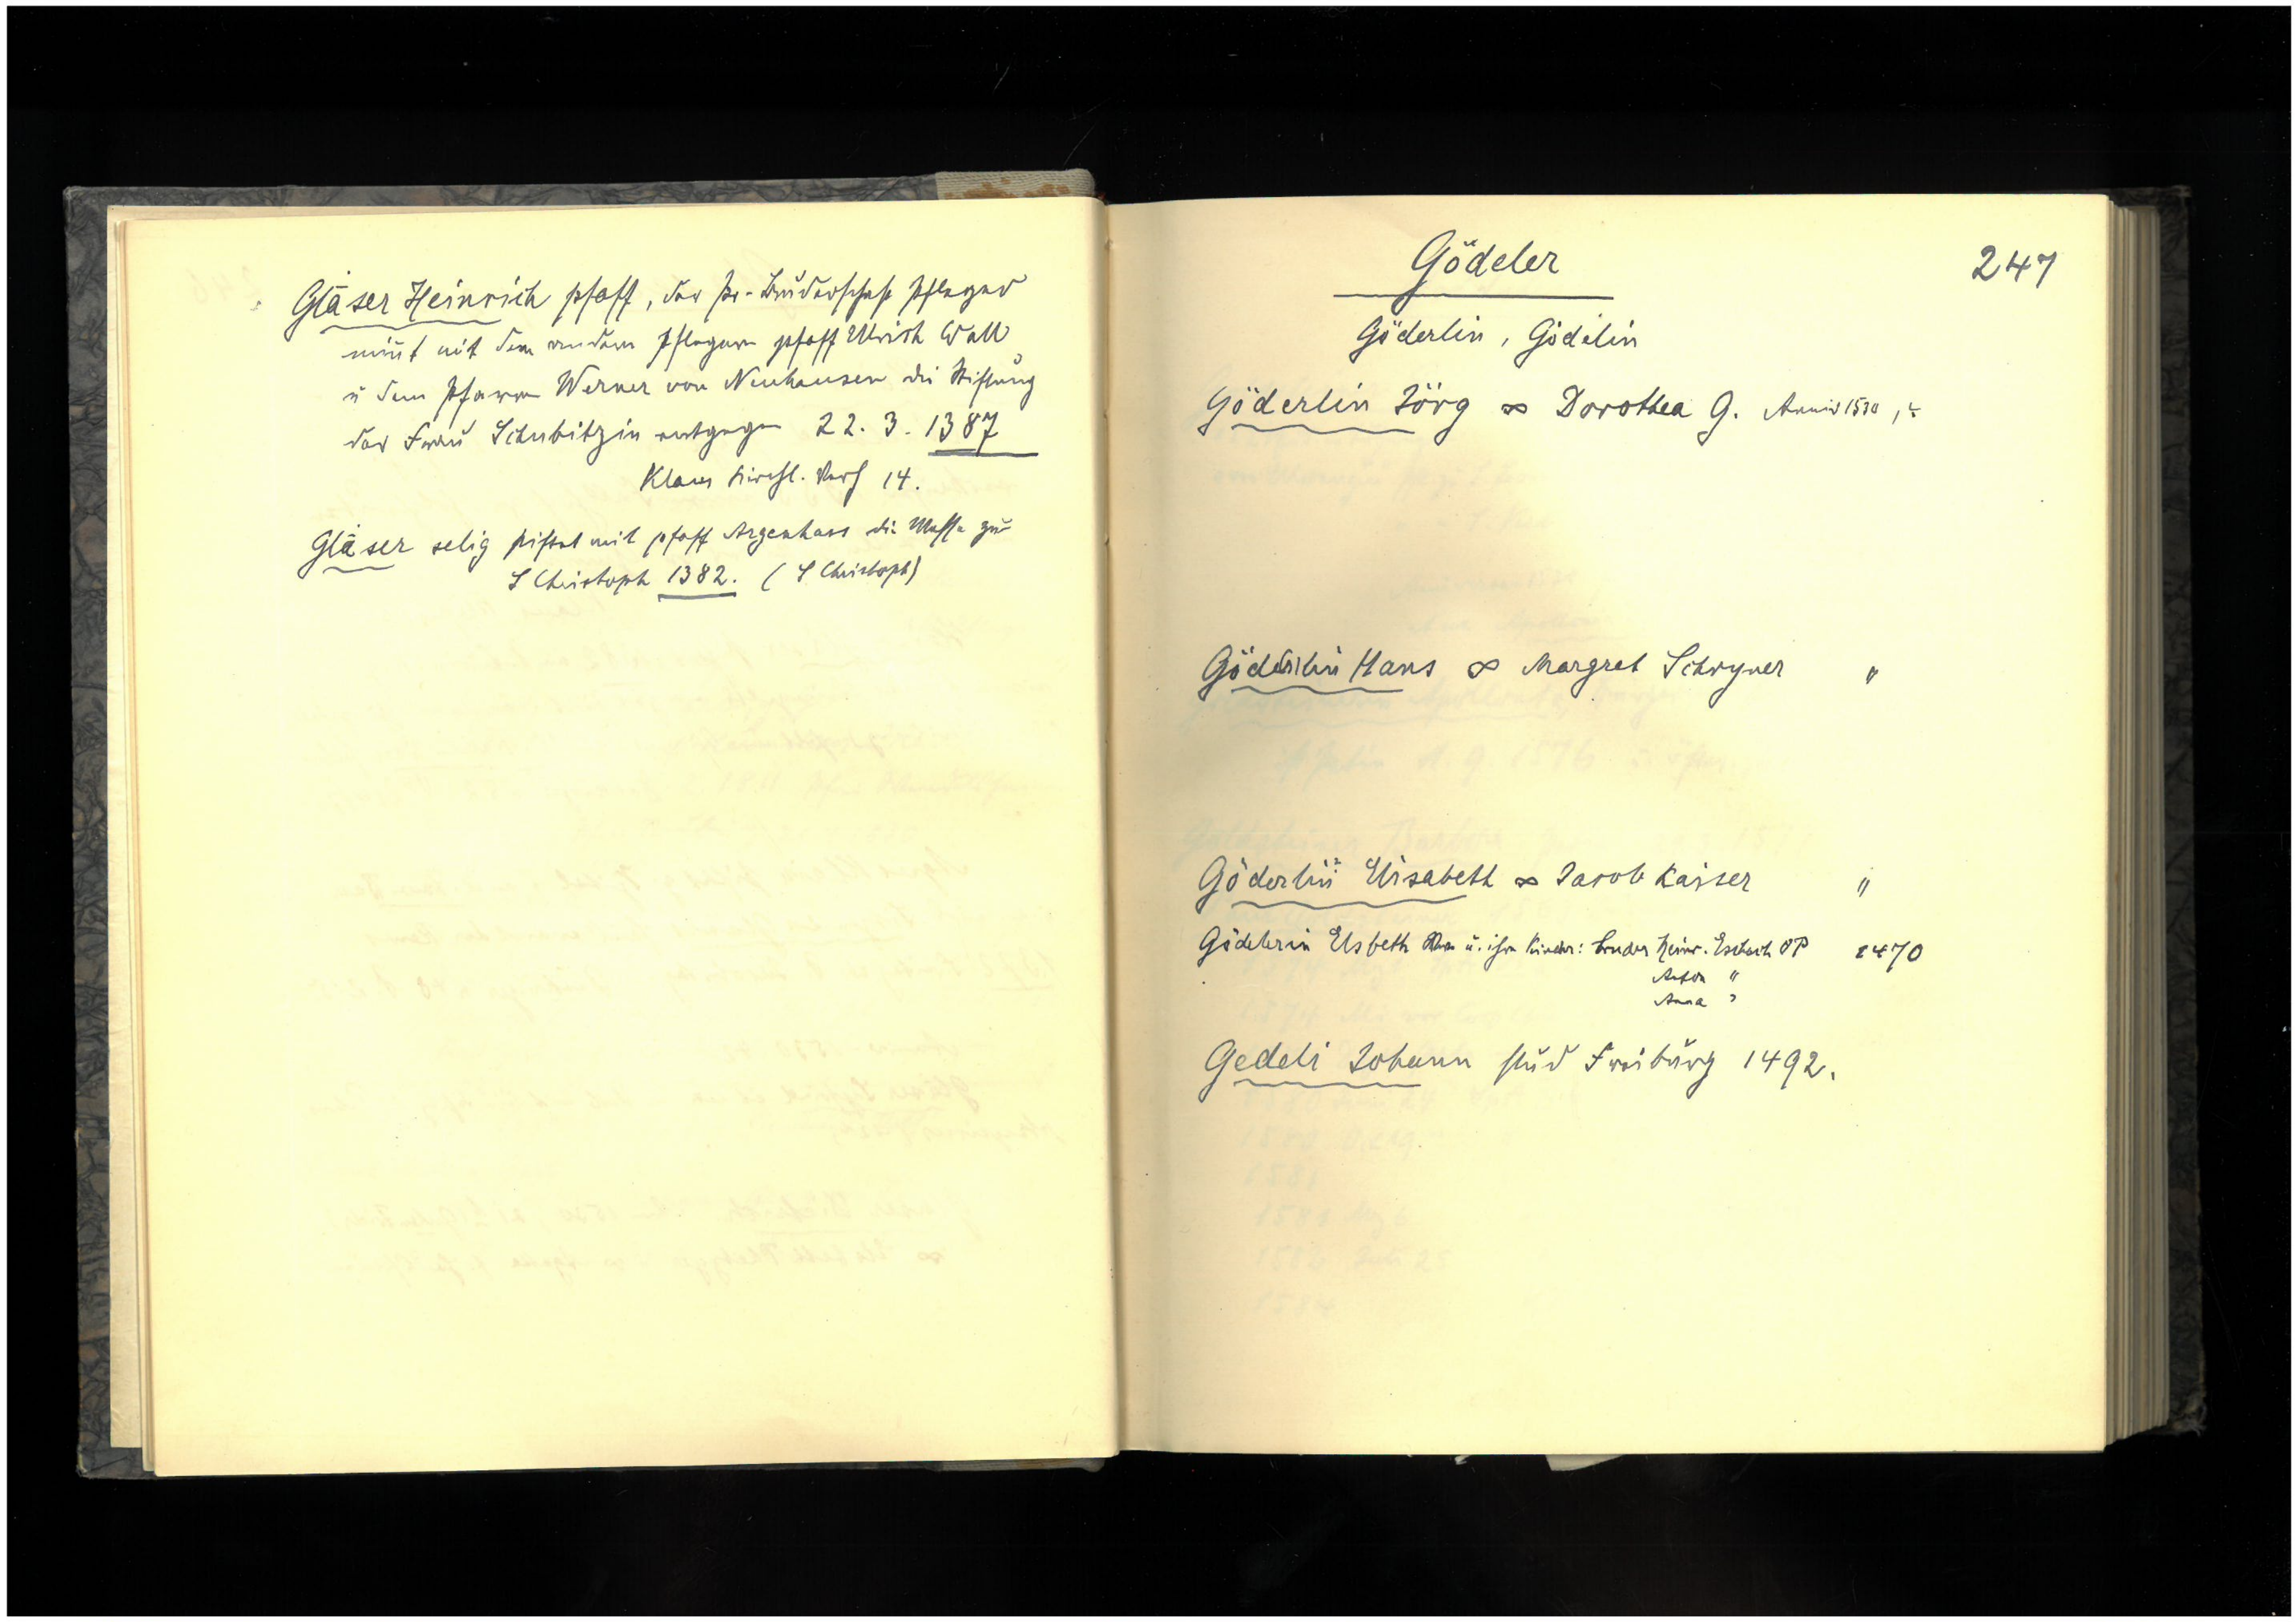 Gläser Heinrich pfaff, der Pr-Bruderschaft Pfleger
nimt mit dem andern Pfleger pfaff Ulrich Wall
u dem Pfarrer Werner von Neuhausen die Stiftung
der Frau Schubitzin entgegen 22. 3. 1387
Klaus Kirchl. Verh 14.
Gläser selig stiftet mit pfaff Argenhans die Messe zu
S Christoph 1382. (S Christoph)
247
Gödeler
Göderlin, Gödelin
Göderlin Jörg ∞ Dorothea G. Anniv 1530,
Göderlin Hans ∞ Margret Schryner "
Göderlin Elisabeth ∞ Jacob Kaiser "
Gödelerin Elsbeth u. ihre Kinder: Bruder Heinr. Esbach OP 1470
Anton "
Anna "
Gedeli Johann stud Freiburg 1492.